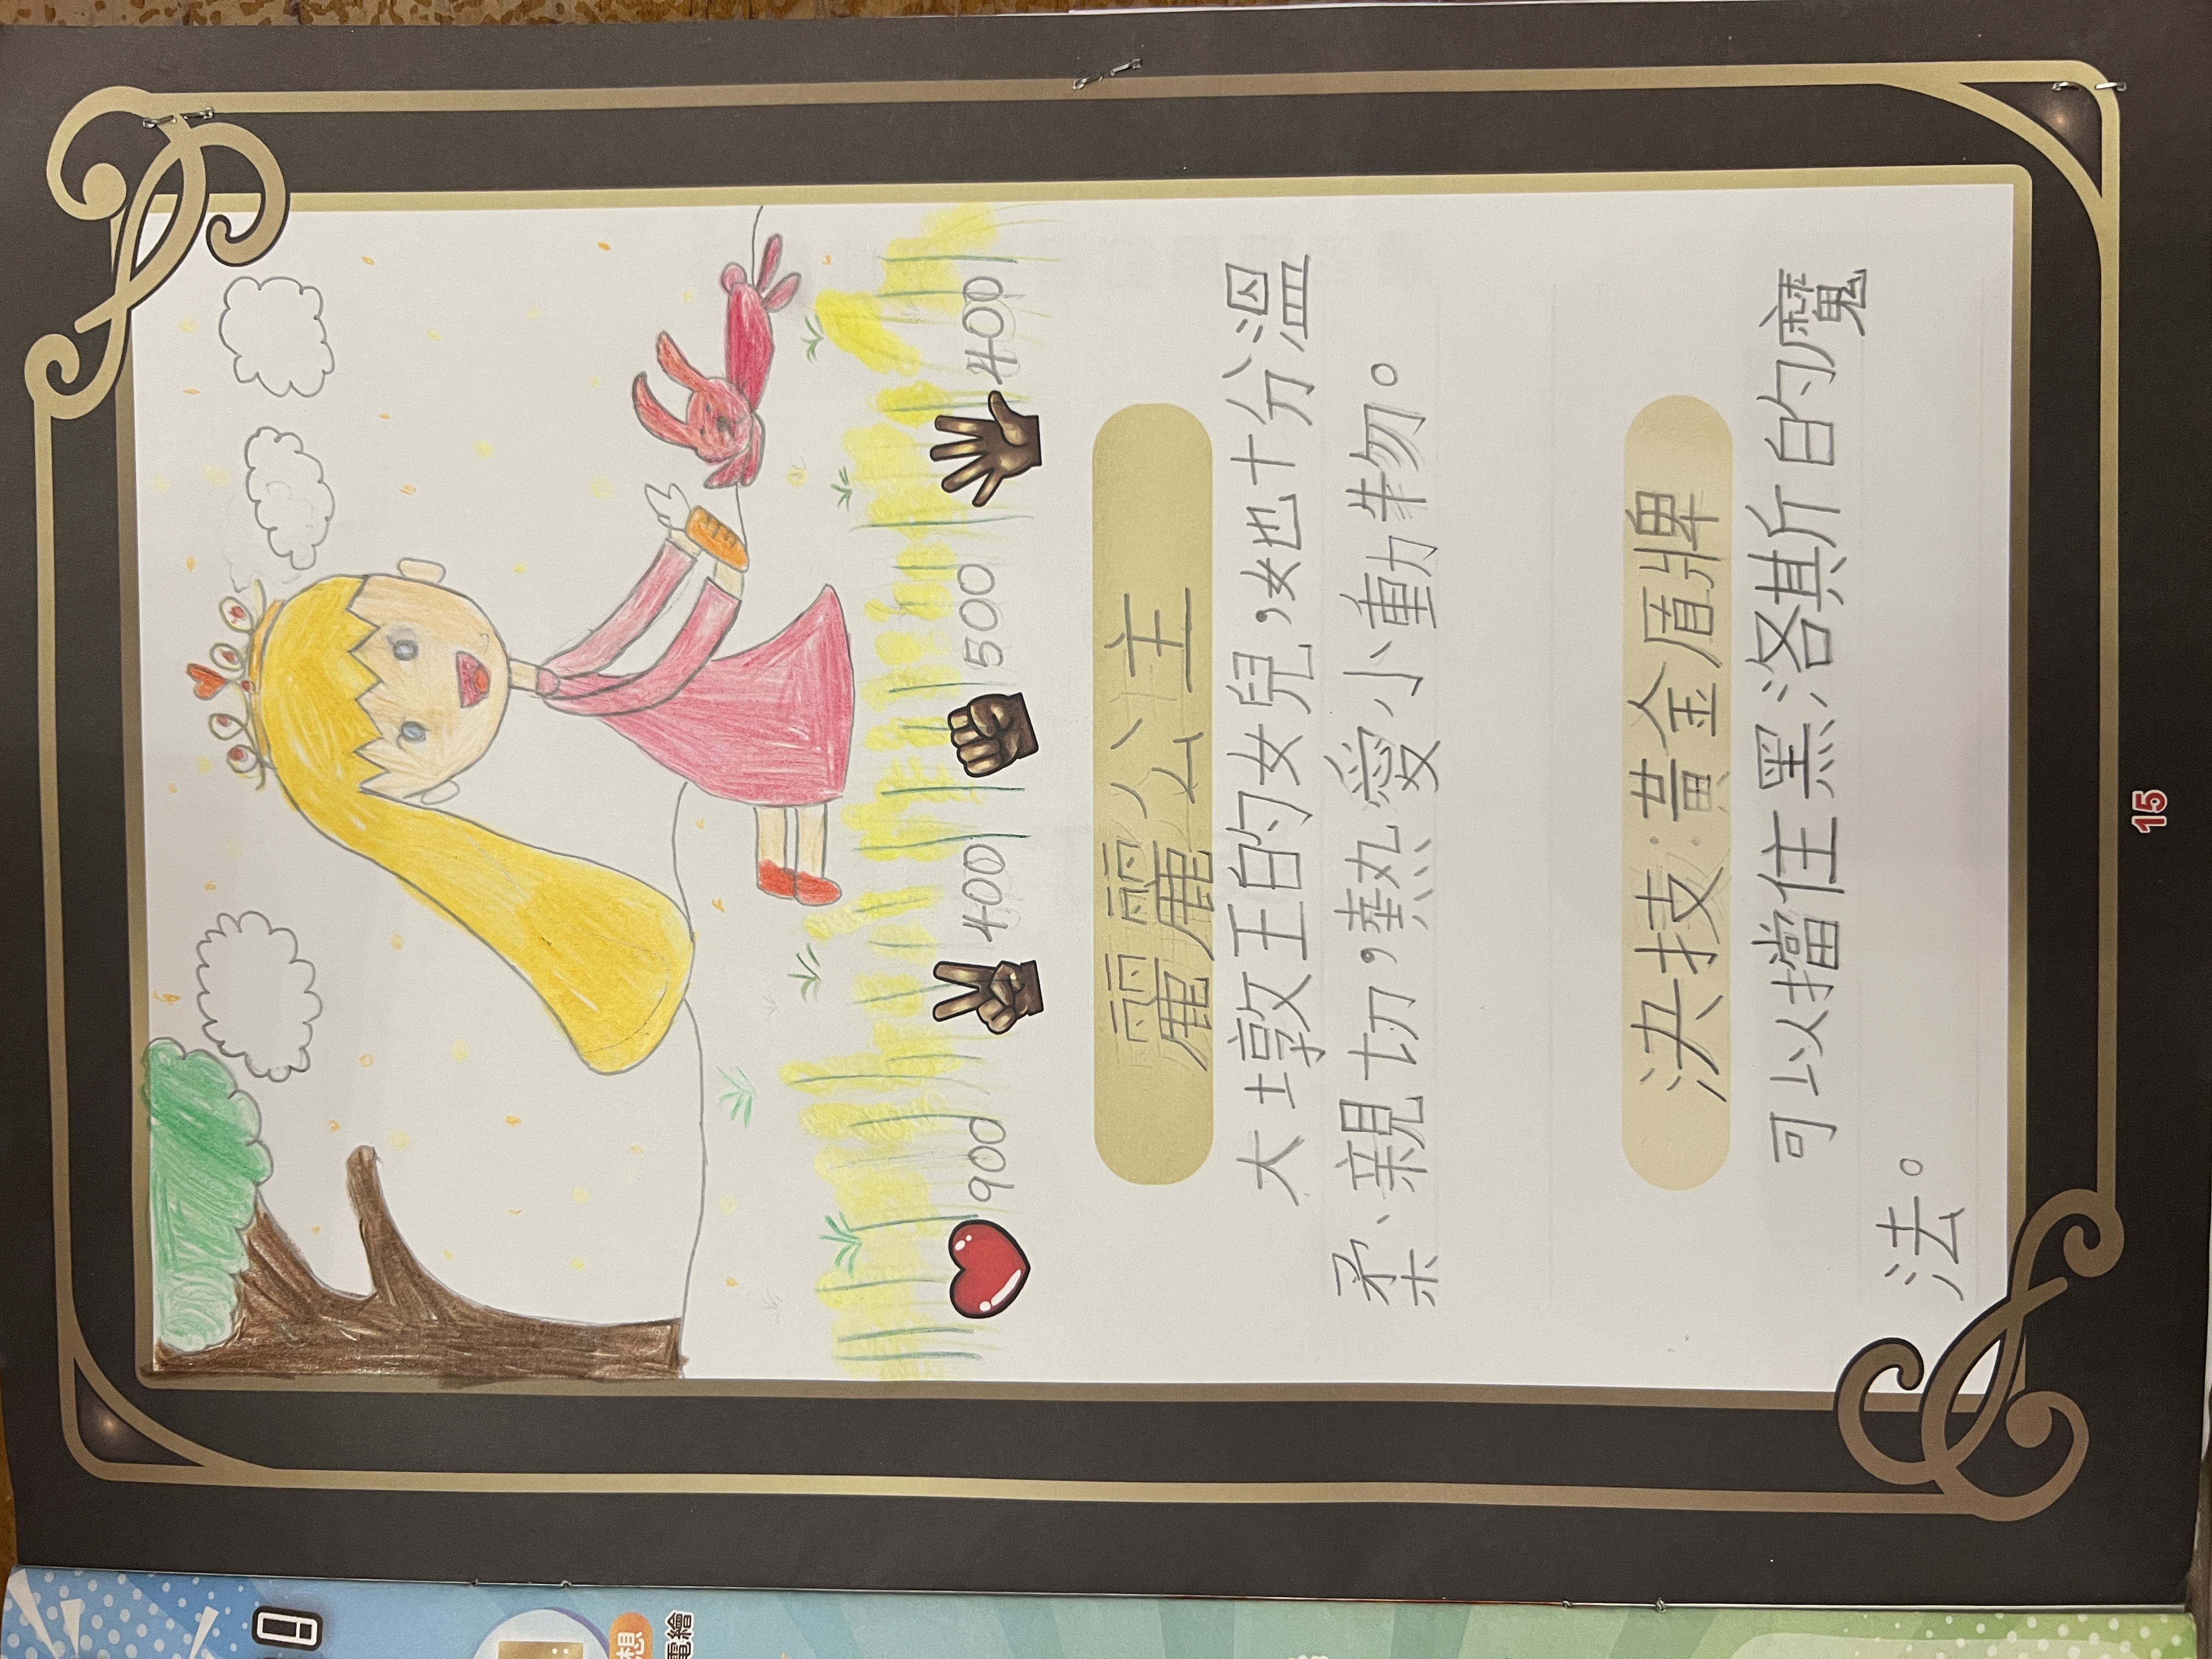 900 400 500 400
麗麗公主
大土敦王的女兒,她十分溫
柔、親切,熱愛小動物。
決技:黃金盾牌
可以擋住黑洛其斤的魔
法。
15
想
電繪